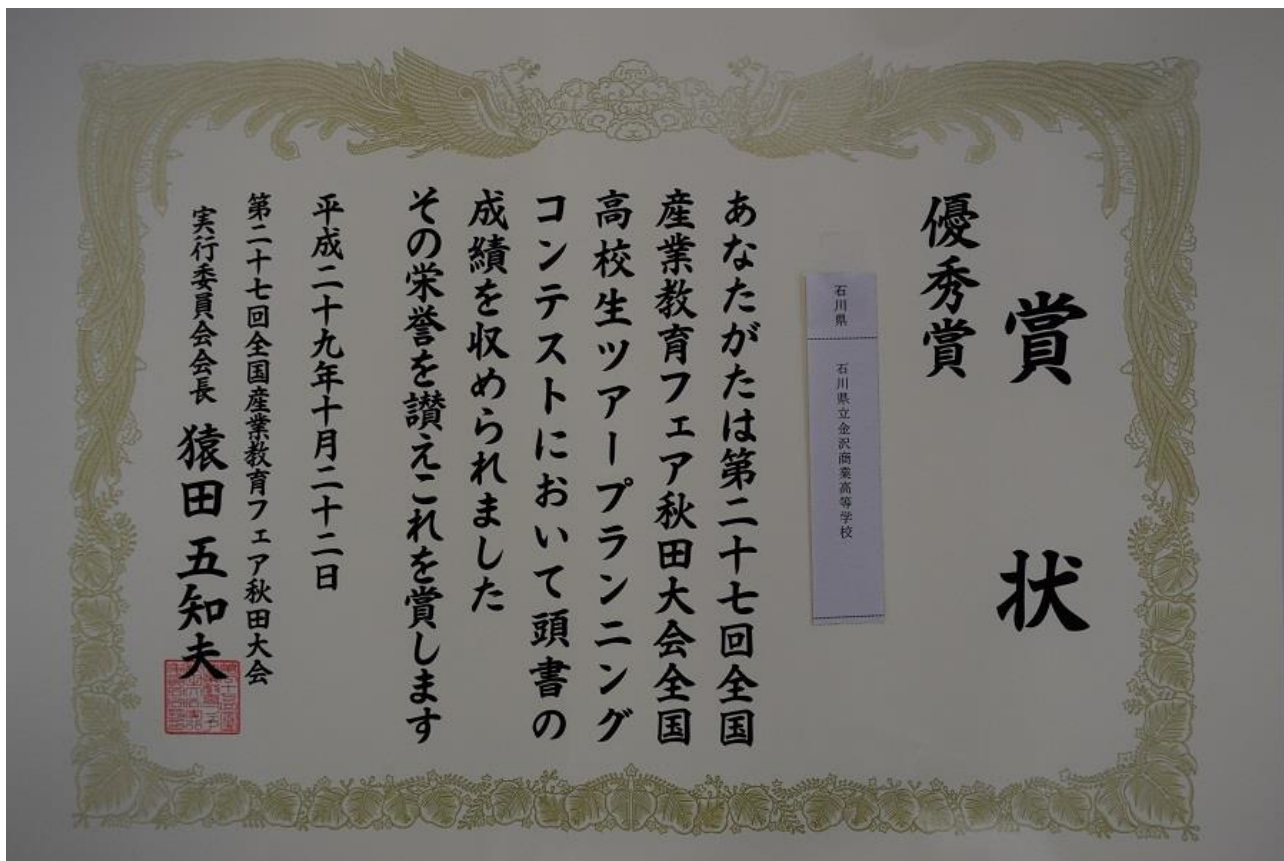 賞状
優秀賞
石川県 石川県立金沢商業高等学校
あなたがたは第二十七回全国
産業教育フェア秋田大会全国
高校生ツアープランニング
コンテストにおいて頭書の
成績を収められました
その栄誉を讃えこれを賞します
平成二十九年十月二十二日
第二十七回全国産業教育フェア秋田大会
実行委員会会長 猿田五知夫